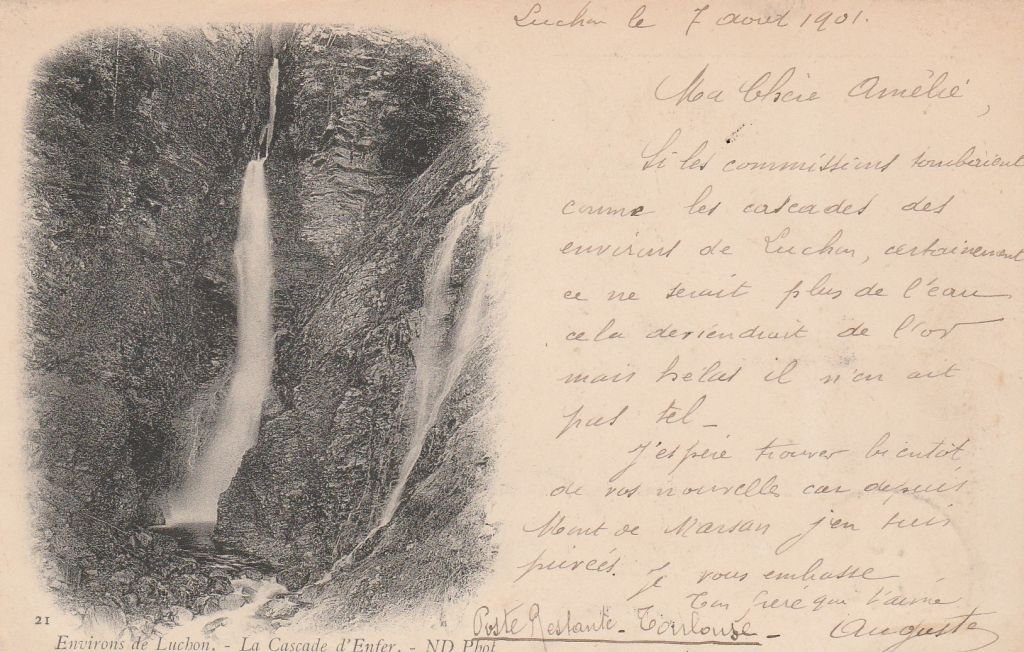 Luchon le 7 aout 1901.
Ma Chère Amélie,
Si les commissions tombaient
comme les cascades des
environs de Luchon, certainement
ce ne serait plus de l'eau
cela deviendrait de l'or
mais helas il n'en ait
pas tel_
J'espère trouver bientôt
de vos nouvelles car depuis
Mont de Marsan j'en suis
privées. Je vous embasse
Ton frère qui t'aime
Auguste
Poste Restante - Toulouse_
21
Environs de Luchon. - La Cascade d'Enfer. - ND Phot